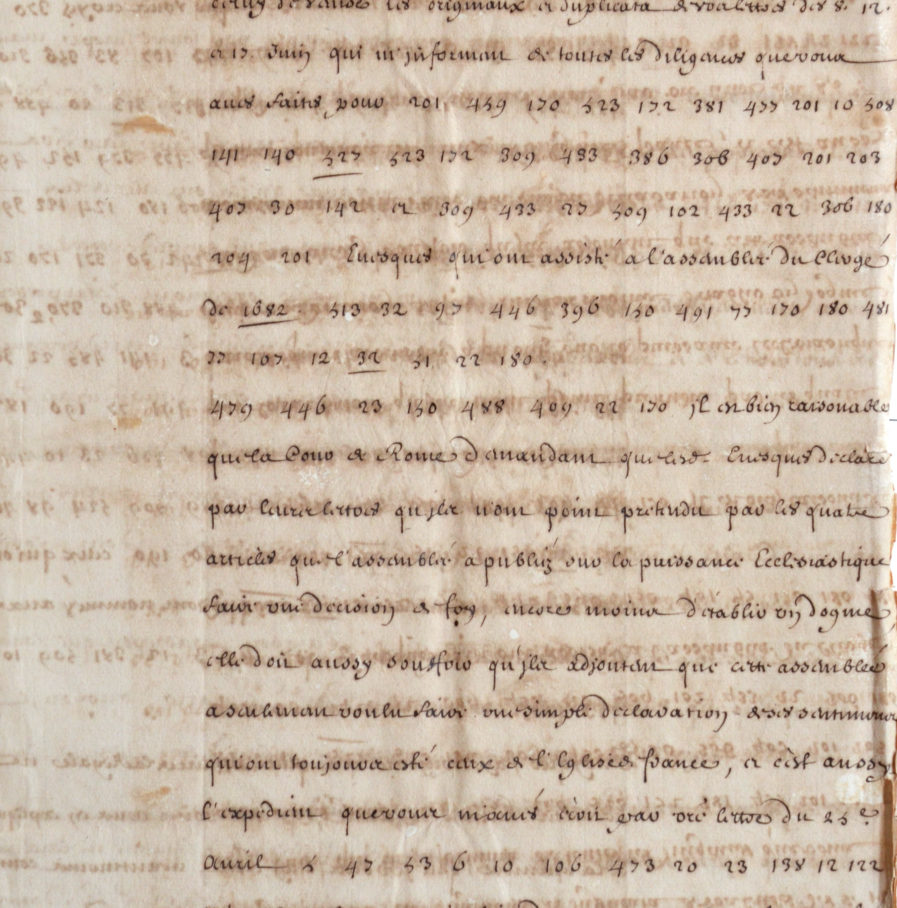 les originaux et duplicata de vos lettres des 8. 12.
et 17. Juin qui m'informent de toutes les diligences que vous
avés faites pour 201 459 170 523 172 381 477 201 10 508
141 140 527 523 172 309 433 386 306 407 201 203
407 30 142 et 309 433 27 509 102 433 22 306 180
204 201 Evesques qui ont assisté a l'assemblée du Clergé
de 1682. 513 32 97 446 396 150 491 77 170 180 481
77 107 12 32 51 22 180.
479 446 23 150 488 409 22 170 il est bien raisonable
que la Cour de Rome demandant que lesd. Evesques declare
par leurs lettres qu'ils n'ont point pretendu par les quatre
articles que l'assemblée a publiéz sur la puissance Ecclesiastique
faire une decision de foy, encore moins d'establir un dogme,
elle doit aussy souffrir qu'ils adjoutent que cette assemblée
a seulement voulu faire une simple declaration de ses sentimens
qui ont toujours esté ceux de l'Eglise de france, et c'est aussy
l'expedient que vous m'avés écrit par vre lettre du 25.e
Avril 5 47 53 6 10 106 473 20 23 138 12 122